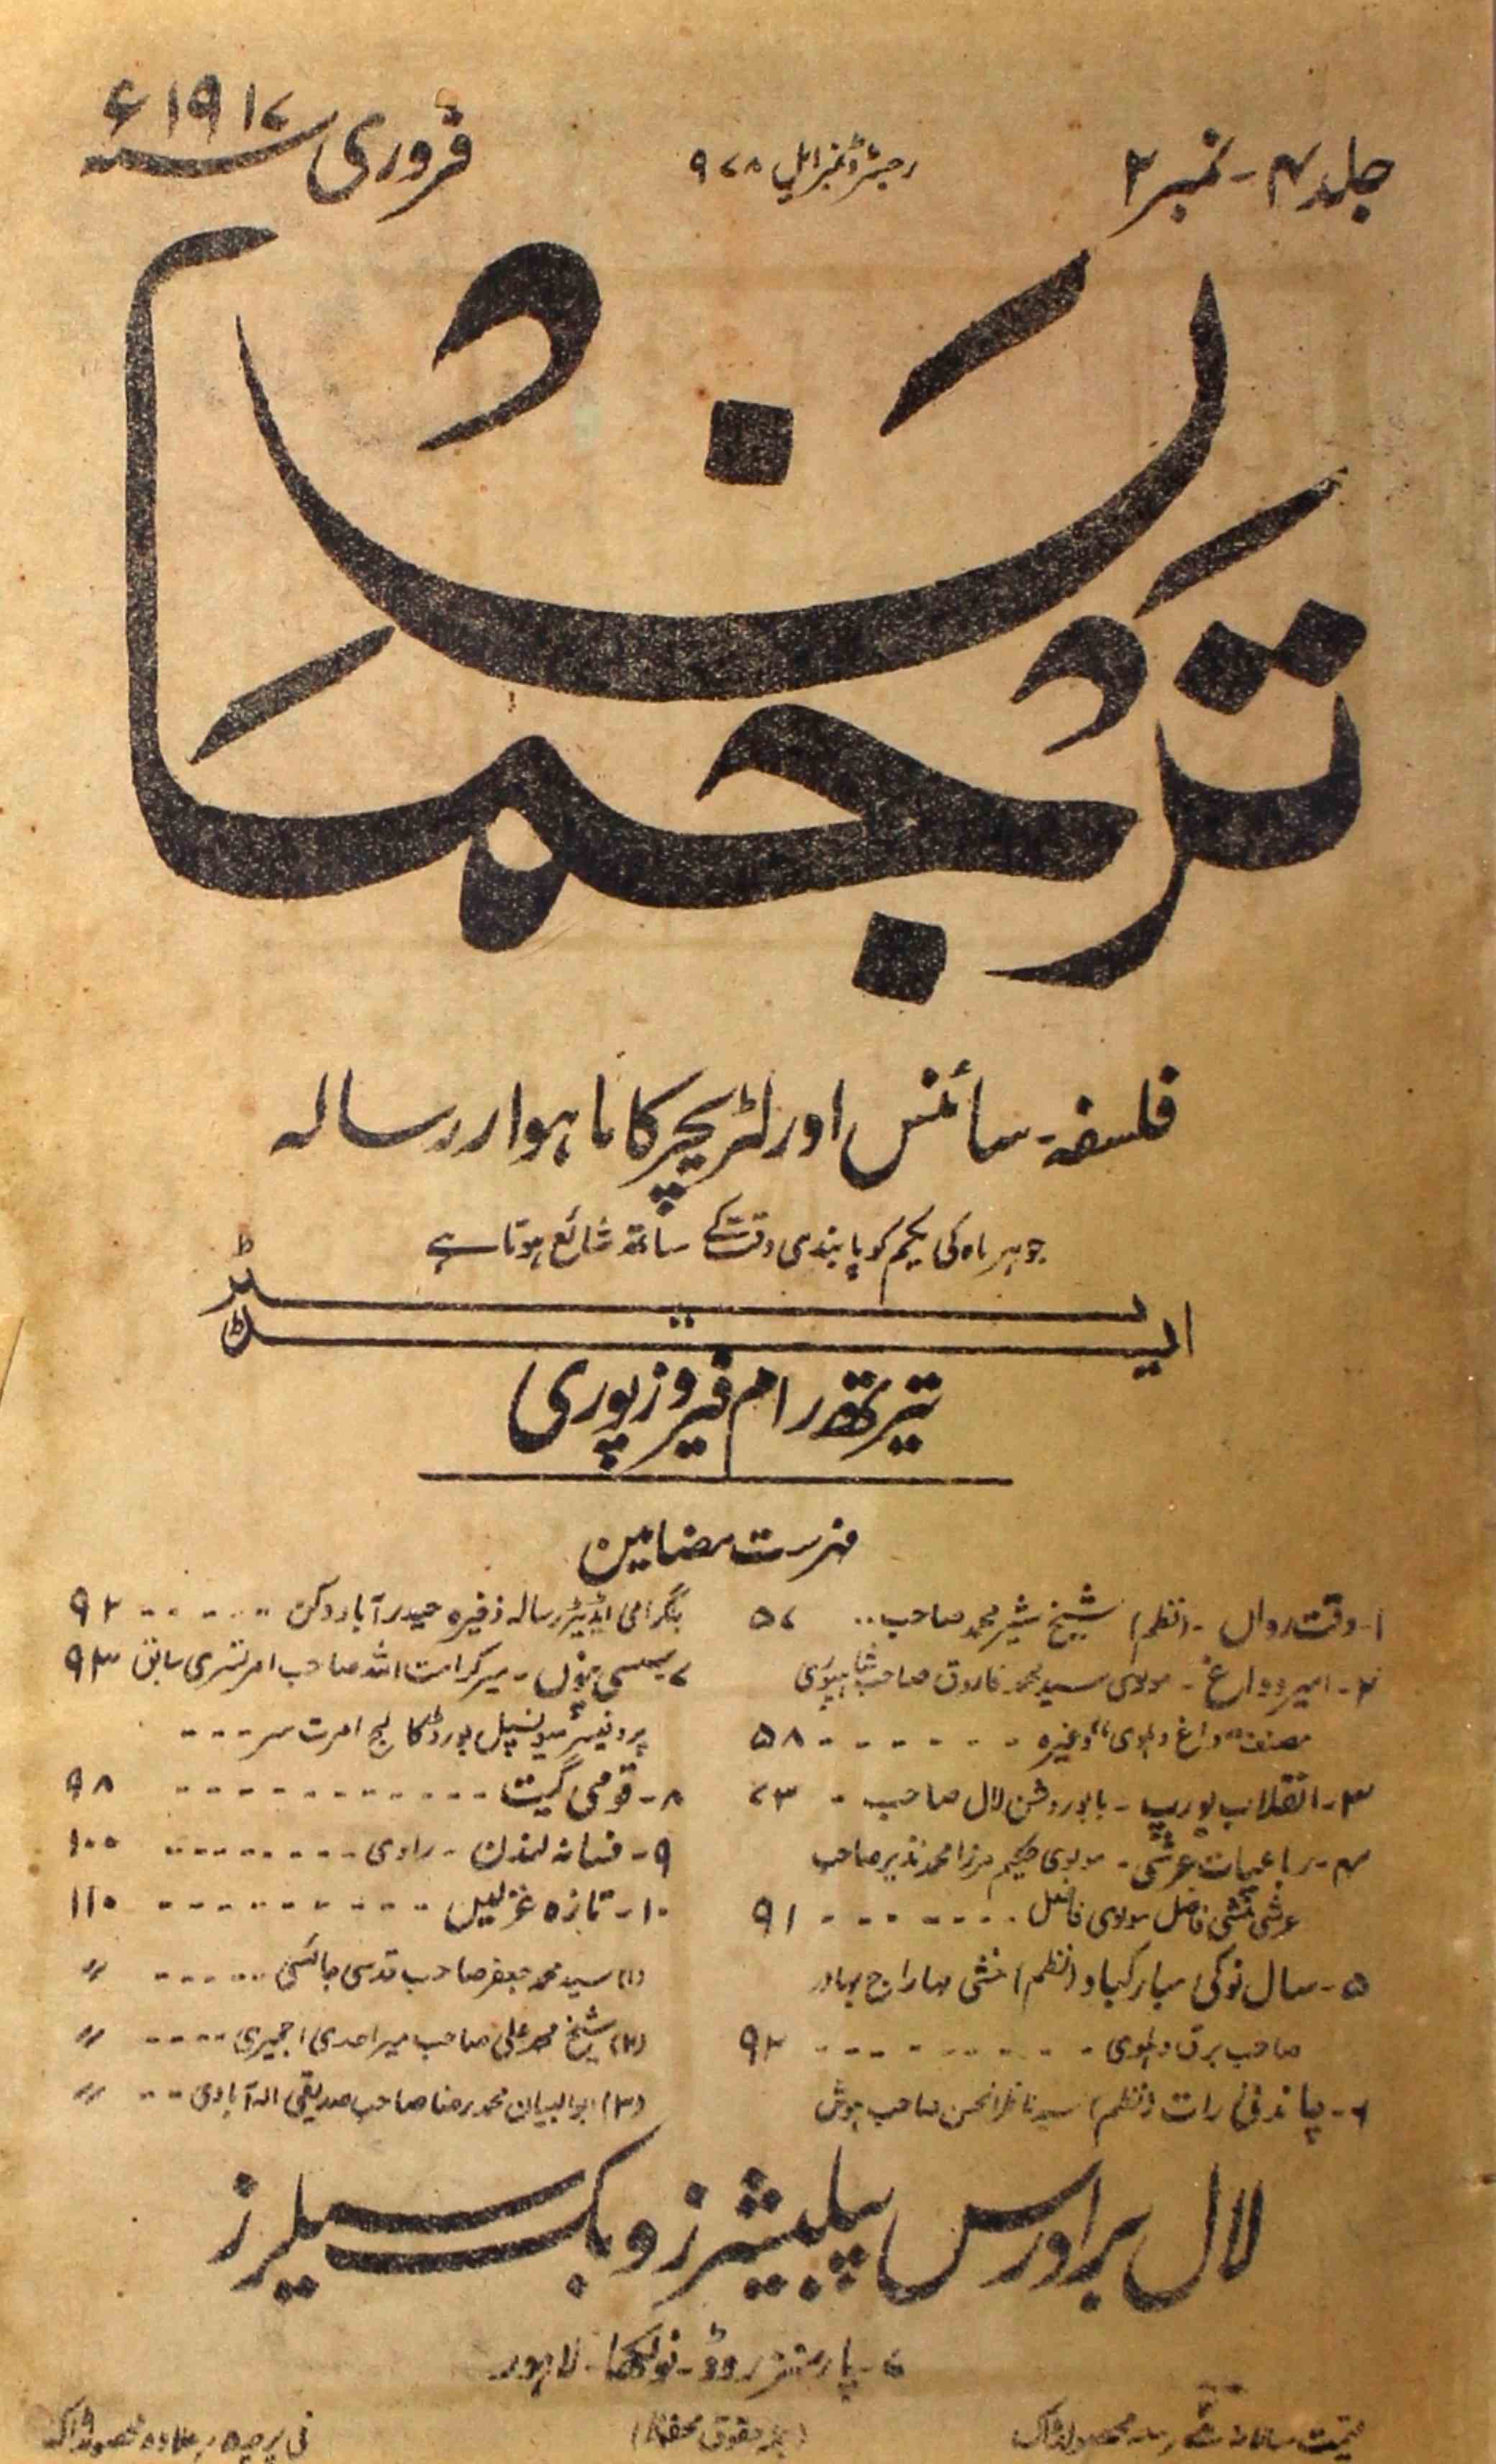 جلد ۴ - نمبر ۲
رجسٹرڈ نمبر ایل ۹۷۸
فروری ۱۹۱۷ء
ترجمان
فلسفہ - سائنس اور لٹریچر کا ماہوار رسالہ
جو ہر ماہ کی یکم کو پابندی وقت کے ساتھ شائع ہوتا ہے
ایڈیٹر
تیرتھ رام فیروزپوری
فہرست مضامین
۱ - وقت رواں - (نظم) شیخ بشیر محمد صاحب .. ۵۷
۲ - امیر و داغ - مولوی سید محمد فاروق صاحب شاہپوری
مصنف "داغ دہلوی" وغیرہ - - - - - - - ۵۸
۳ - انقلاب یورپ - بابو روشن لال صاحب - ۷۳
۴ - رباعیات عرشی - مولوی حکیم مرزا محمد نذیر صاحب
عرشی منشی فاضل مولوی فاضل - - - - - - - ۹۱
۵ - سال نو کی مبارکباد (نظم) منشی مہاراج بہادر
صاحب برق دہلوی - - - - - - - - - ۹۲
۶ - چاندنی رات (نظم) سید ناظرالحسن صاحب ہوش
بلگرامی ایڈیٹر رسالہ ذخیرہ حیدرآباد دکن - - - - - ۹۲
۷ - میر کرامت اللہ صاحب امرتسری سابق ۹۳
پروفیسر میونسپل بورڈ کالج امرت سر - - -
۸ - قومی گیت - - - - - - - - - - - ۹۸
۹ - فسانہ لندن - راوی - - - - - - - - - ۱۰۰
۱۰ - تازہ غزلیں - - - - - - - - - - ۱۱۰
(۱) سید محمد جعفر صاحب قدسی جائسی - - - - - - 〃
(۲) شیخ محمد علی صاحب میر احمدی اجمیری - - - - 〃
(۳) ابوالبیان محمد رضا صاحب صدیقی الہ آبادی - - - 〃
لال برادرس پبلیشرز و بک سیلرز
۷ - پارسنز روڈ - نولکھا - لاہور
قیمت سالانہ محصولڈاک
(جملہ حقوق محفوظ)
فی پرچہ علاوہ محصولڈاک